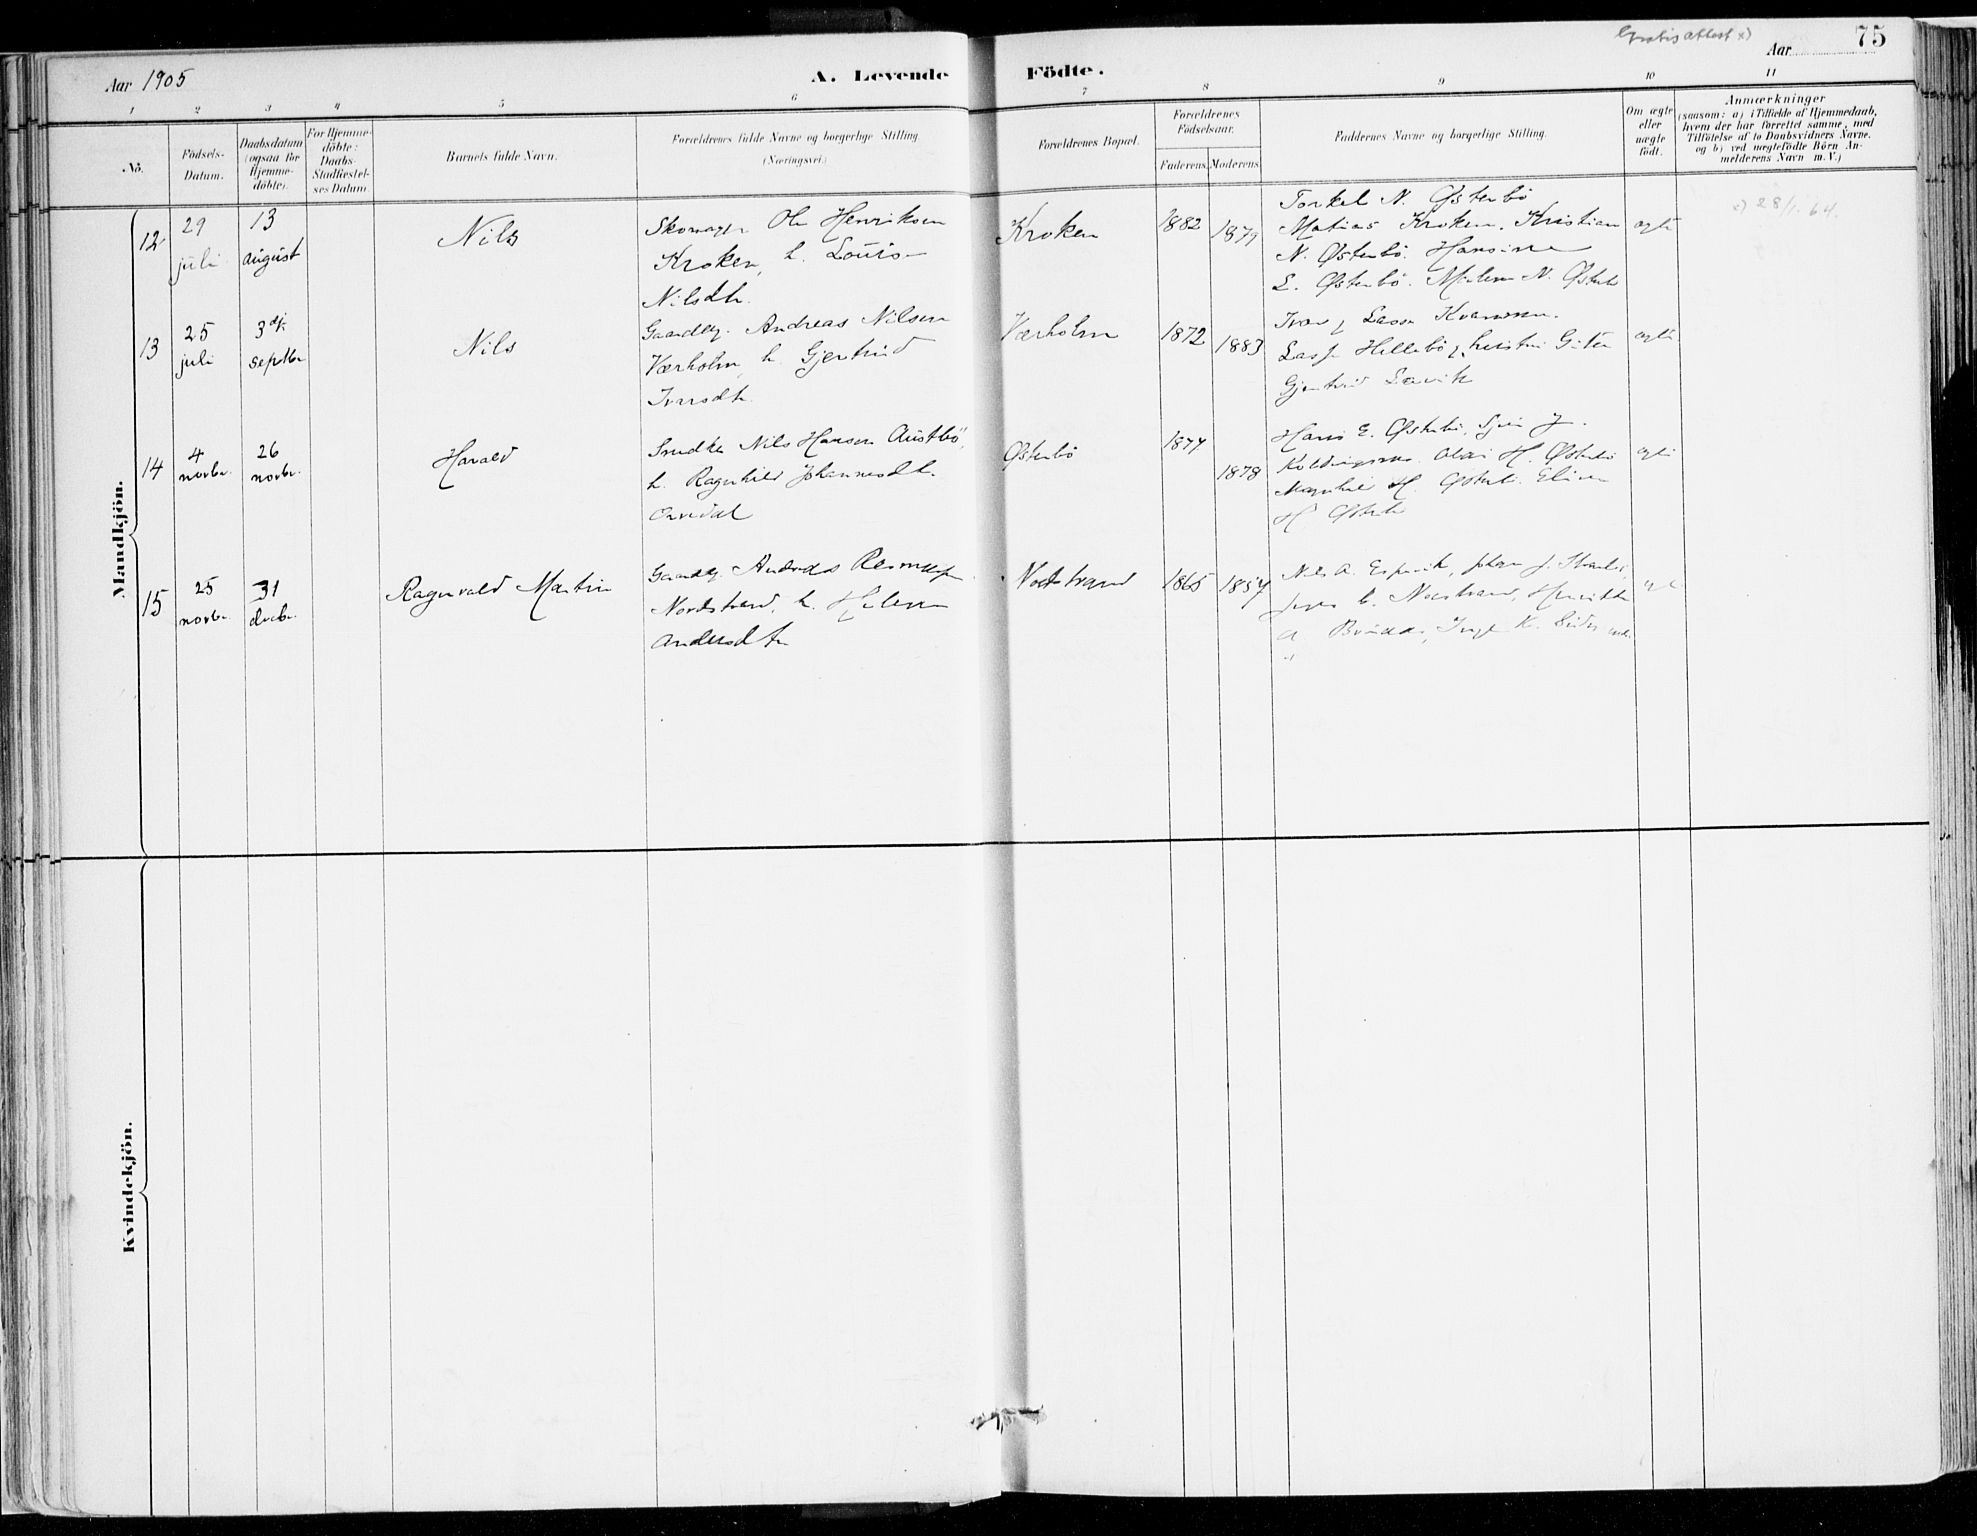 Gratisattest x)
75
Aar 1905
A. Levende Födte.
Aar
1 2 3 4 5 6 7 8 9 10 11
No.
Födsels-
Datum.
Daabsdatum
(ogsaa for
Hjemme-
döbte).
For Hjemme-
döbte:
Daabs-
Stadfæstel-
ses Datum.
Barnets fulde Navn.
Forældrenes fulde Navne og borgerlige Stilling.
(Næringsvei.)
Forældrenes Bopæl.
Forældrenes
Födselsaar.
Faderens. Moderens.
Faddernes Navne og borgerlige Stilling.
Om ægte
eller
uægte
født.
Anmærkninger
(saasom: a) i Tilfælde af Hjemmedaab,
hvem der har forrettet samme, med
Tilföielse af to Daabsvidners Navne.
og b) ved uægtefödte Börn An-
melderens Navn m. V.)
Mandkjön.
12
29
juli
13
august
Nils
Skomager Ole Henriksen
Kroken, h. Louise
Nilsdtr.
Kroken
1882
1879
Torkel N. Østerbö
Matias Kroken, Kristian
N. Østerbö. Hansine
L. Østerbö. Malene N. Østerbö
ægte
x) 28/1. 64.
13
25
juli
3dj.
septbr
Nils
Gaardbr. Andreas Nilsen
Værholm, h. Gjertrud
Iversdtr.
Værholm
1872
1883
Iver, Lasse
Lasse Hillebö,
Gjertrud Lavik
ægte
14
4
novbr.
26
novbr.
Harald
Snedker Nils Hansen Austbö,
h. Ragnhild Johannesdtr.
Østerbö
1877
1878
Hans E. Østerbö,
H. Østerbö
H. Østerbö.
H Østerbö
ægte
15
25
novbr.
31
decbr.
Ragnvald Martin
Gaardbr. Andreas Rasmussen
Nordstrand, h. Helene
Andersdtr
Nordstrand
1865
1857
Nils A. Espevik, Johan J.
Nordstrand, Henrikke
A.
Kvindekjön.